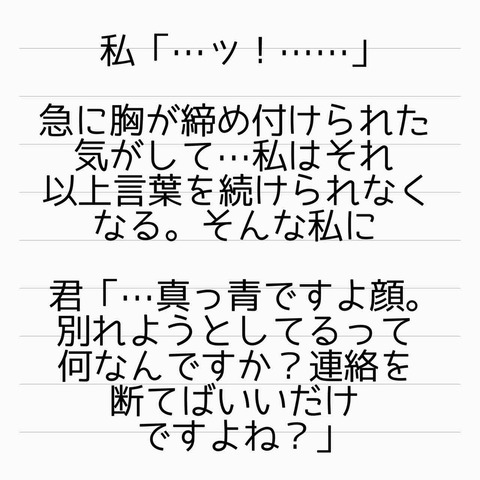 私「…ッ！……」
急に胸が締め付けられた
気がして…私はそれ
以上言葉を続けられなく
なる。そんな私に
君「…真っ青ですよ顔。
別れようとしてるって
何なんですか？連絡を
断てばいいだけ
ですよね？」